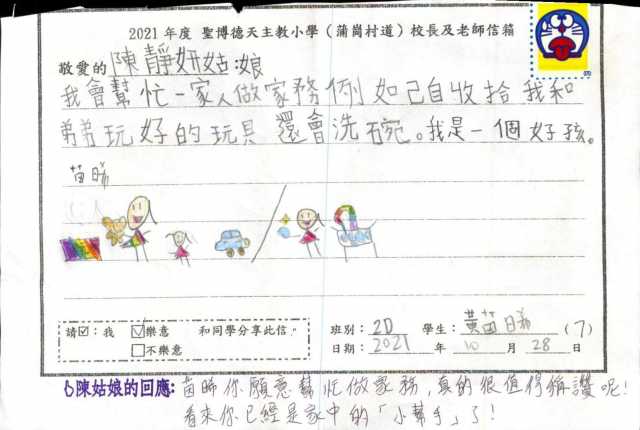 2021 年度 聖博德天主教小學（蒲崗村道）校長及老師信箱
敬愛的 陳靜妍姑娘：
我會幫忙一家人做家務例如己自收拾我和
弟弟玩好的玩具 還會洗碗。我是一個好孩。
苗晞
請☑：我 ☑樂意 和同學分享此信。
□不樂意
班別：2D 學生：黃苗晞 (7)
日期：2021 年 10 月 28 日
陳姑娘的回應：苗晞你願意幫忙做家務，真的很值得稱讚呢！
看來你已經是家中的「小幫手」了！